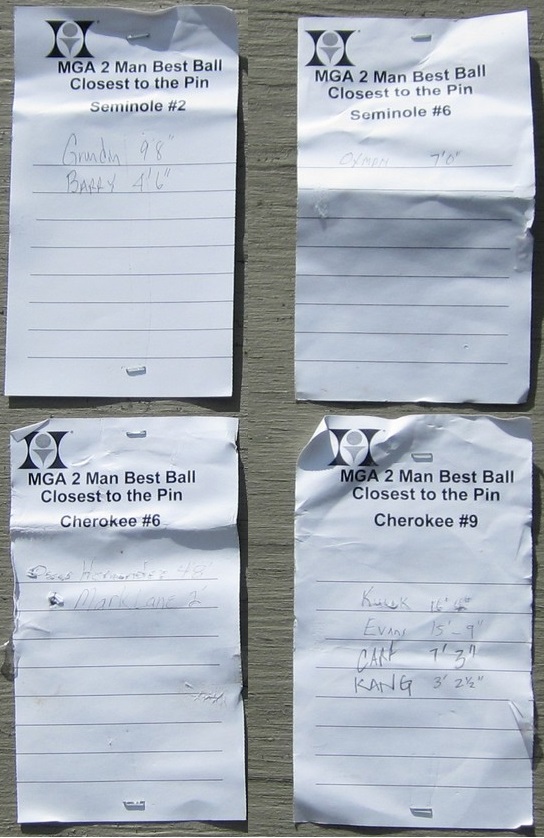 MGA 2 Man Best Ball
Closest to the Pin
Seminole #2
9'8"
BARRY 4'6"
MGA 2 Man Best Ball
Closest to the Pin
Seminole #6
7'0"
MGA 2 Man Best Ball
Closest to the Pin
Cherokee #6
Hernandez 48'
Mark Lane 2'
MGA 2 Man Best Ball
Closest to the Pin
Cherokee #9
16' 6"
Evans 15'-9"
CARR 7' 3"
KANG 3' 2½"